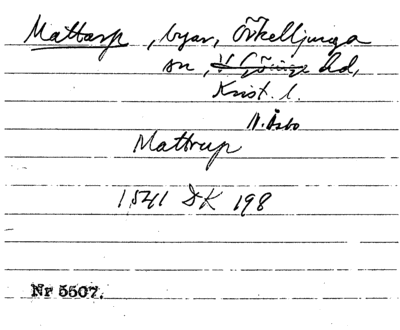 Mattarp, byar, Örkelljunga
sn, V Göinge hd,
Krist. l.
N. Åsbo
Mattrup
1541 DK 198
Nr 5507.